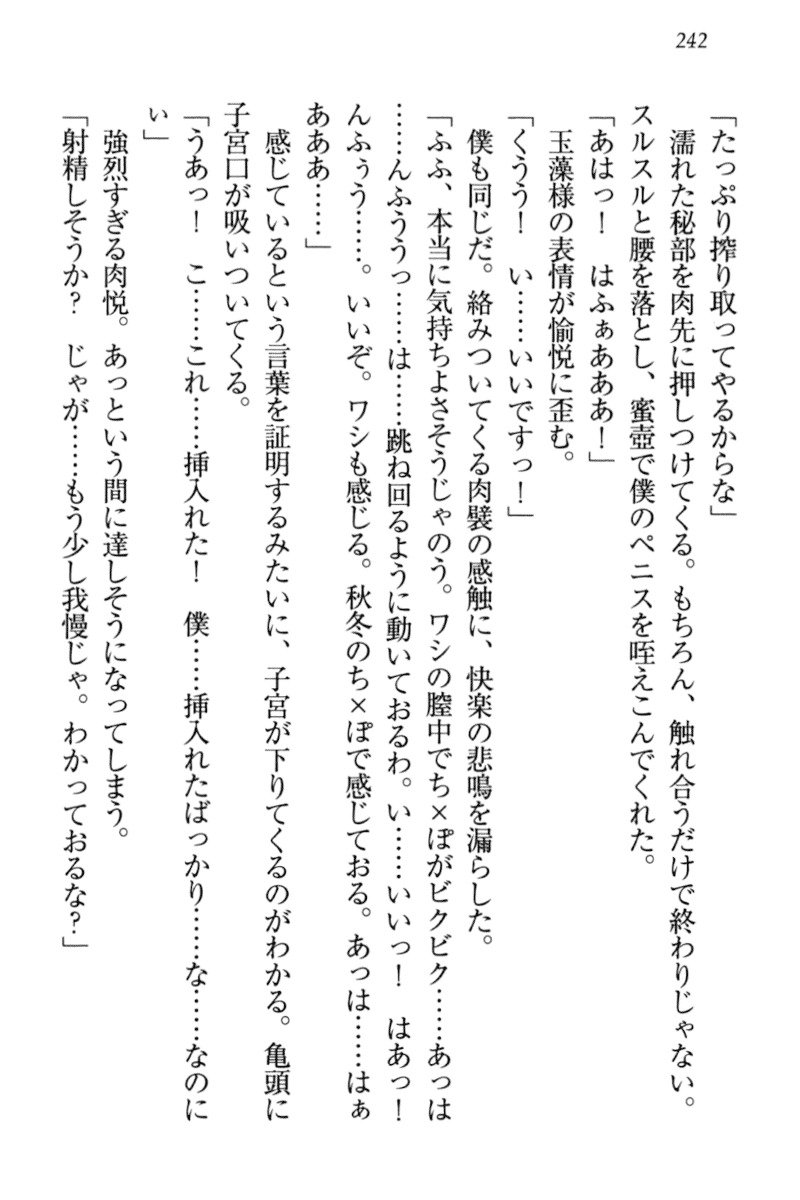 242
「たっぷり搾り取ってやるからな」
濡れた秘部を肉先に押しつけてくる。もちろん、触れ合うだけで終わりじゃない。
スルスルと腰を落とし、蜜壺で僕のペニスを咥えこんでくれた。
「あはっ！　はふぁあああ！」
玉藻様の表情が愉悦に歪む。
「くうう！　い……いいですっ！」
僕も同じだ。絡みついてくる肉襞の感触に、快楽の悲鳴を漏らした。
「ふふ、本当に気持ちよさそうじゃのう。ワシの膣中でち×ぽがビクビク……あっは
……んふううっ……は……跳ね回るように動いておるわ。い……いいっ！　はあっ！
んふぅう……。いいぞ。ワシも感じる。秋冬のち×ぽで感じておる。あっは……はぁ
あああ……」
感じているという言葉を証明するみたいに、子宮が下りてくるのがわかる。亀頭に
子宮口が吸いついてくる。
「うあっ！　こ……これ……挿入れた！　僕……挿入れたばっかり……な……なのに
ぃ」
強烈すぎる肉悦。あっという間に達しそうになってしまう。
「射精しそうか？　じゃが……もう少し我慢じゃ。わかっておるな？」